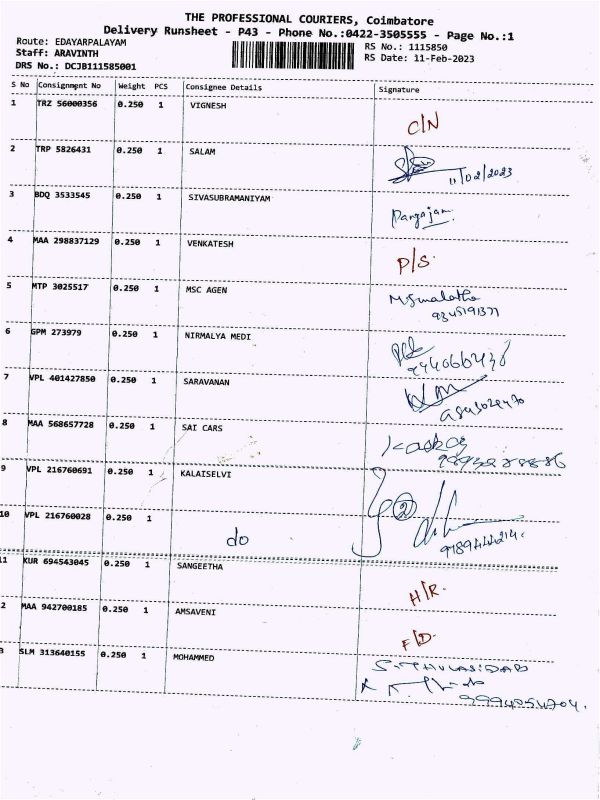 THE PROFESSIONAL COURIERS, Coimbatore
Delivery Runsheet - P43 - Phone No.:0422-3505555 - Page No.:1
Route: EDAYARPALAYAM
Staff: ARAVINTH
DRS No.: DCJB111585001
RS No.: 1115850
RS Date: 11-Feb-2023
S No Consignment No Weight PCS Consignee Details Signature
1 TRZ 56000356 0.250 1 VIGNESH C/N
2 TRP 5826431 0.250 1 SALAM 11/02/2023
3 BDQ 3533545 0.250 1 SIVASUBRAMANIYAM Pangajam
4 MAA 298837129 0.250 1 VENKATESH P/S.
5 MTP 3025517 0.250 1 MSC AGEN
6 GPM 273979 0.250 1 NIRMALYA MEDI
7 VPL 401427850 0.250 1 SARAVANAN
8 MAA 568657728 0.250 1 SAI CARS
9 VPL 216760691 0.250 1 KALAISELVI
10 VPL 216760028 0.250 1 do
11 KUR 694543045 0.250 1 SANGEETHA H/R.
2 MAA 942700185 0.250 1 AMSAVENI F/D.
3 SLM 313640155 0.250 1 MOHAMMED